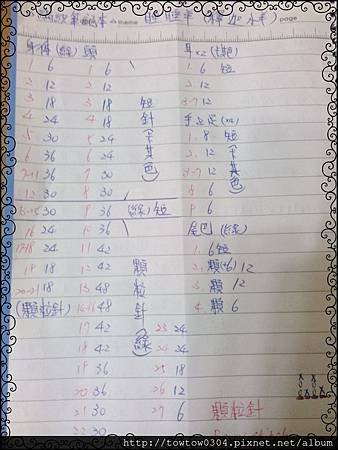 memo
page
身體(綠)
1 6
2 12
3 18
4 24
5 30
6 36
7-11 36
12 30
13-15 30
16 24
17-18 24
19 18
20-21 18
(顆粒針)
頭
1 6
2 12
3 18
4 18
5 24
6 24
7 30
8 30
9 36
10 36
11 42
12 42
13 48
14-16 48
17 42
18 42
19 36
20 36
21 30
22 30
23 24
24 24
25 18
26 12
27 6
短針
(綠)短
顆粒針
(綠)
耳x2
1 6 短
2 12
3-7 12
手&足
1. 8 短
2. 12
3-7 12
8 6
9 6
尾巴(綠)
1. 6短
2. 顆 12
3. 顆 12
4. 顆 6
顆粒針
http://towtow0304.pixnet.net/album